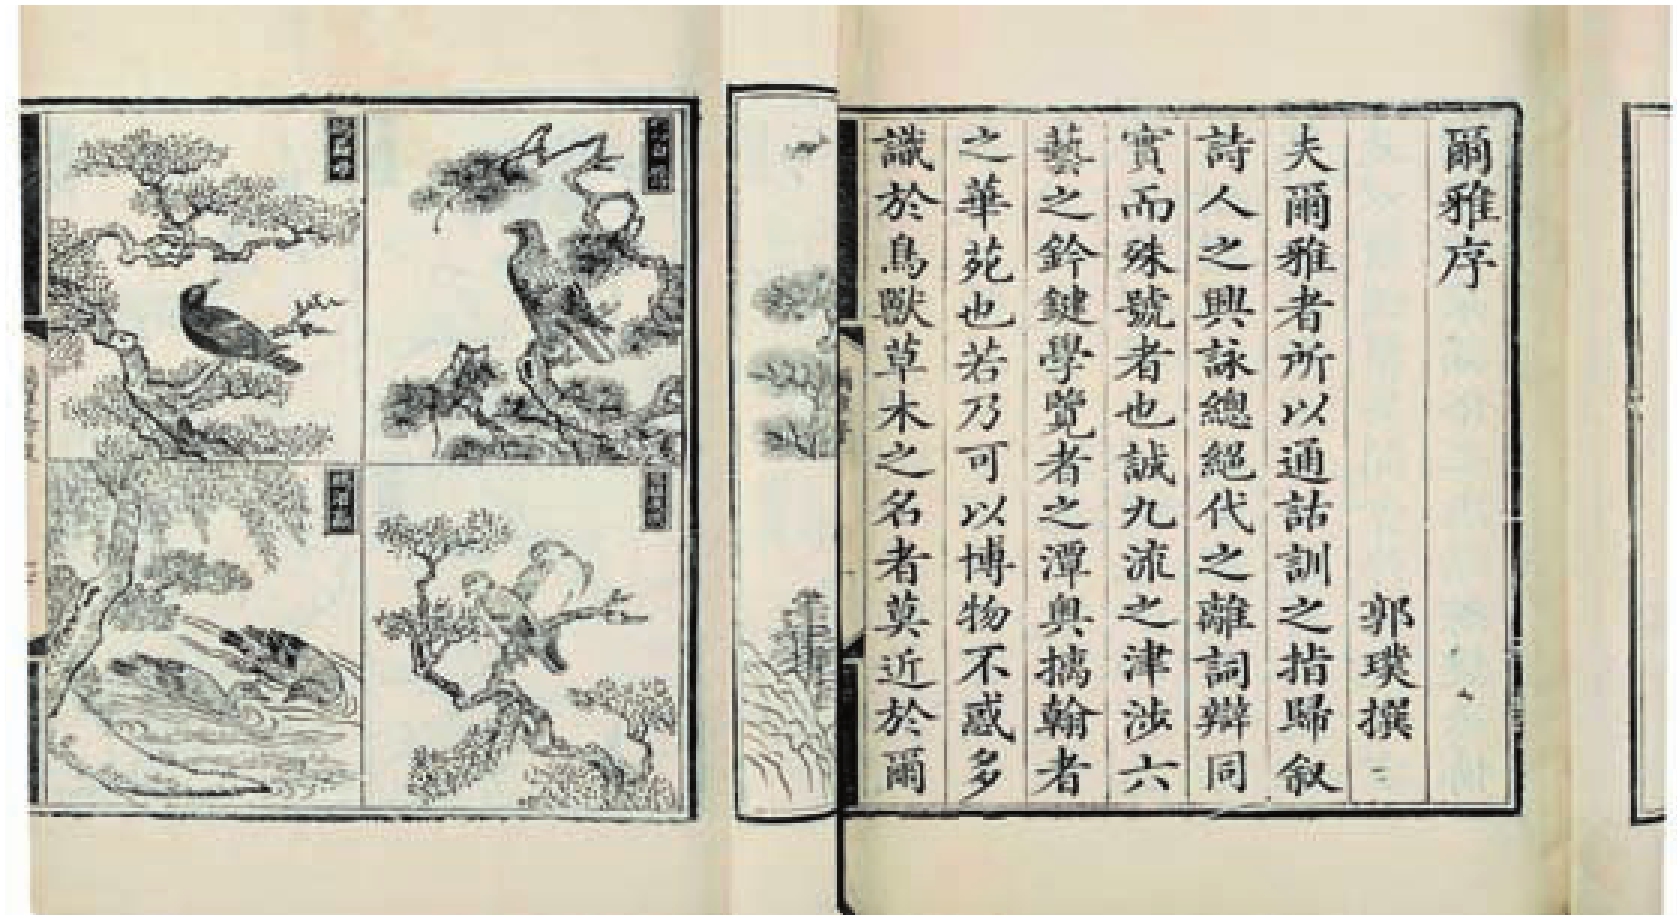 爾雅序
郭璞撰
夫爾雅者所以通詁訓之指歸叙
詩人之興詠總絕代之離詞辯同
實而殊號者也誠九流之津涉六
藝之鈐鍵學覽者之潭奥摛翰者
之華苑也若乃可以博物不惑多
識於鳥獸草木之名者莫近於爾